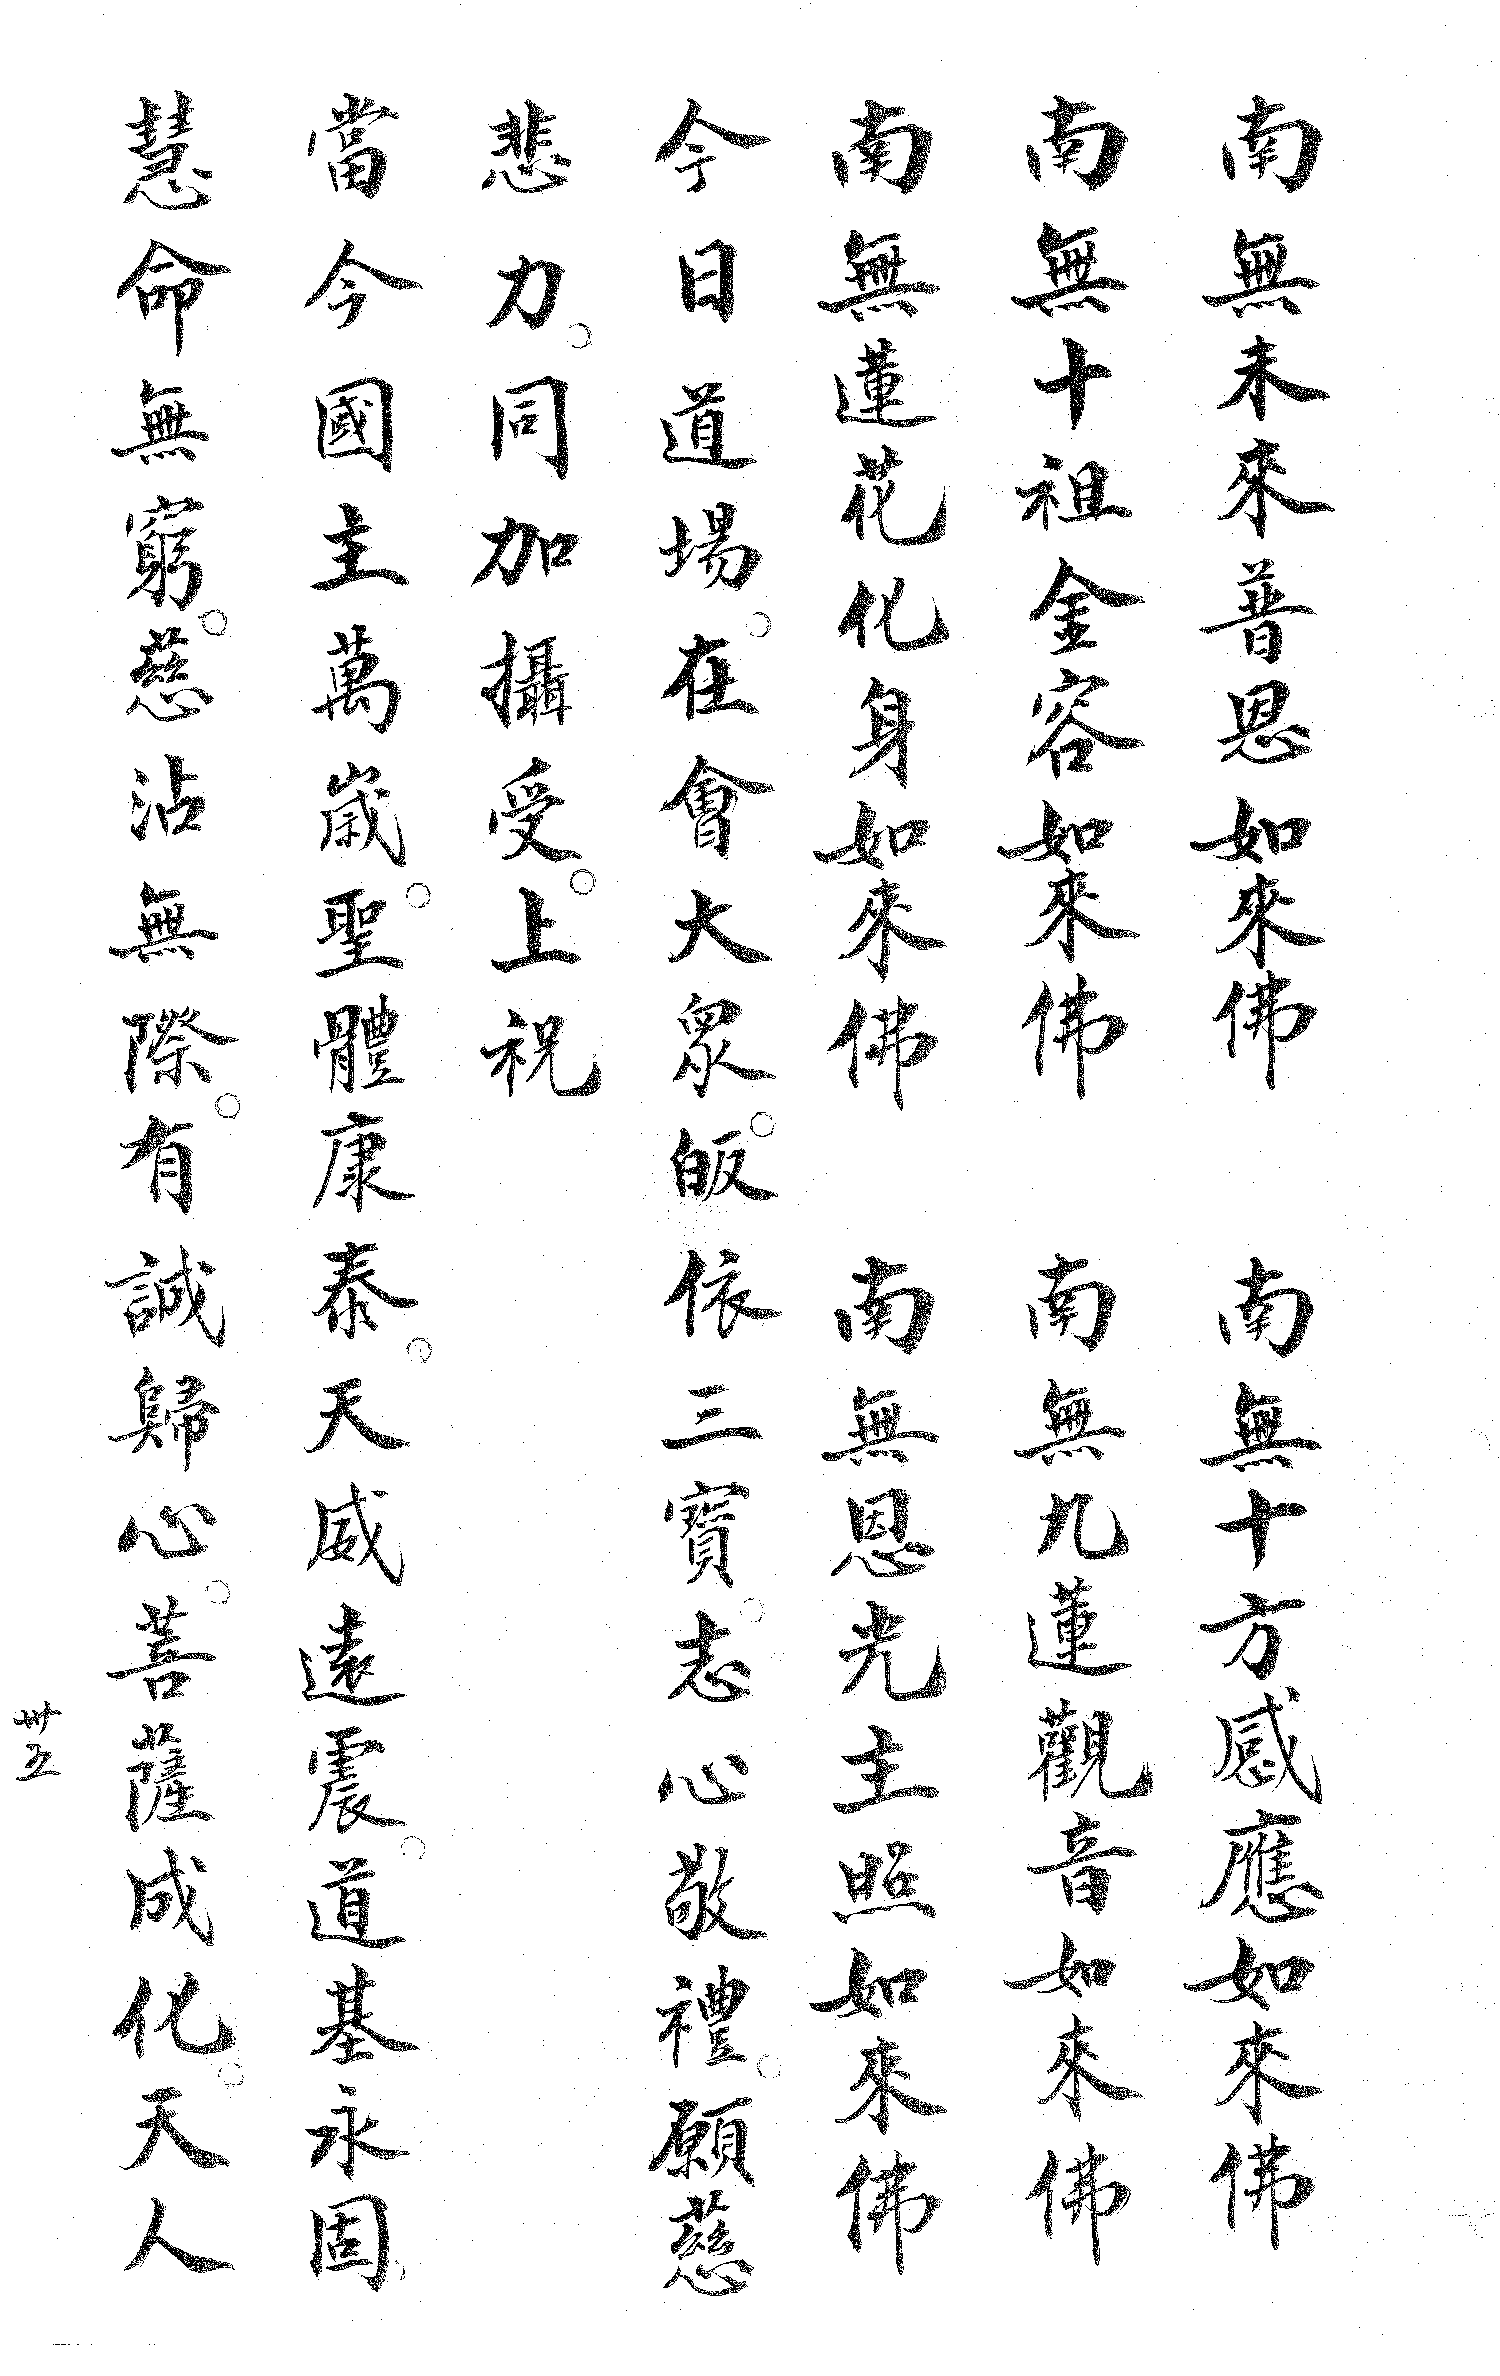 南無未來普恩如來佛　南無十方感應如來佛
南無十祖金容如來佛　南無九蓮觀音如來佛
南無蓮花化身如來佛　南無恩光主照如來佛
今日道場。在會大眾。皈依三寶。志心敬禮。願慈
悲力。同加攝受。上祝
當今國主萬歲。聖體康泰。天威遠震。道基永固。
慧命無窮。慈沾無際。有誠歸心。菩薩成化。天人
卅五